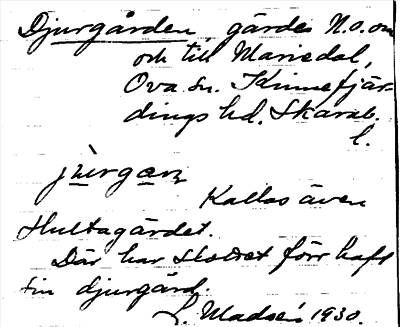 Djurgården, gärde N.o. om
och till Mariedal,
Ova sn. Kinnefjär-
dings hd. Skarab.
l.
jùrgan
Kallas även
Hultagärdet.
Där har slottet förr haft
sin djurgård.
L. Madsén 1930.